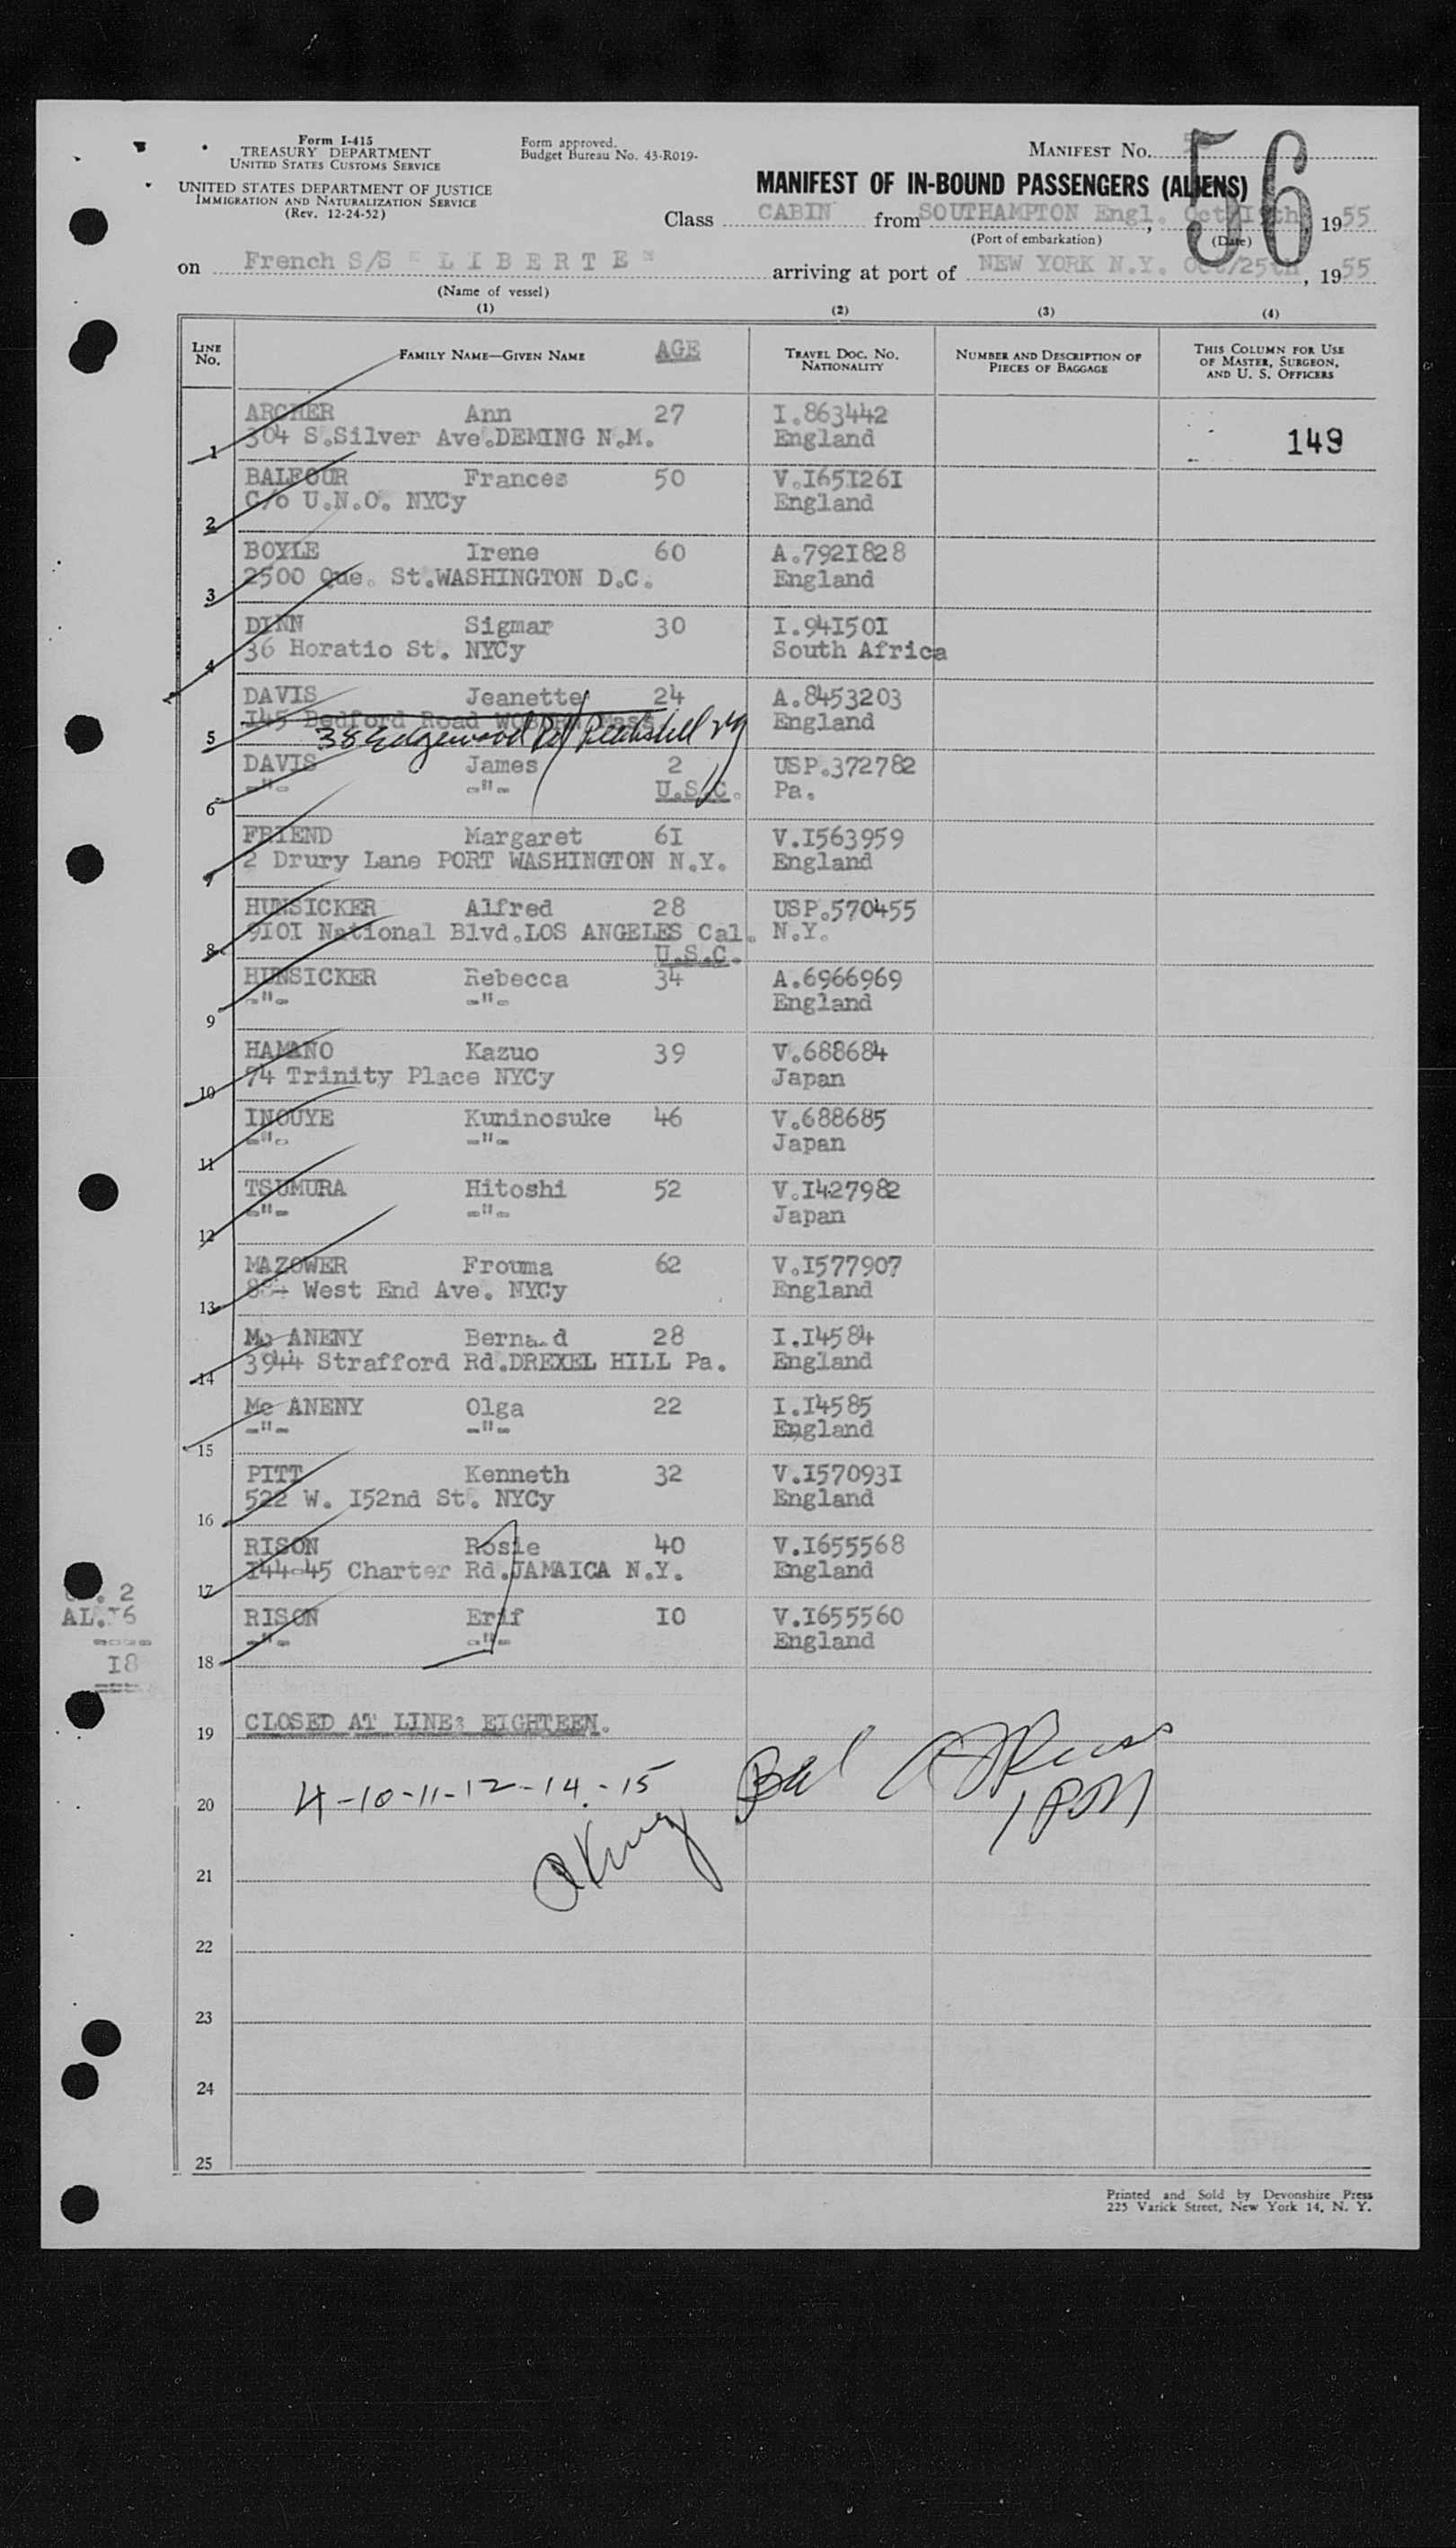 Form I-415
TREASURY DEPARTMENT
UNITED STATES CUSTOMS SERVICE
UNITED STATES DEPARTMENT OF JUSTICE
IMMIGRATION AND NATURALIZATION SERVICE
(Rev. 12-24-52)
Form approved.
Budget Bureau No. 43-R019-
MANIFEST No.
56
MANIFEST OF IN-BOUND PASSENGERS (ALIENS)
Class CABIN from SOUTHAMPTON Engl. , 1955
(Port of embarkation) (Date)
on French S/S " L I B E R T E " arriving at port of NEW YORK N.Y. Oct/25th , 1955
(Name of vessel)
(1) (2) (3) (4)
LINE No. FAMILY NAME—GIVEN NAME AGE TRAVEL DOC. NO. NATIONALITY NUMBER AND DESCRIPTION OF PIECES OF BAGGAGE THIS COLUMN FOR USE OF MASTER, SURGEON, AND U. S. OFFICERS
ARCHER Ann 27 I.863442
1 304 S.Silver Ave.DEMING N.M. England 149
BALFOUR Frances 50 V.I65I26I
2 C/o U.N.O. NYCy England
BOYLE Irene 60 A.792I828
3 2500 Que. St.WASHINGTON D.C. England
DINN Sigmar 30 I.94I50I
4 36 Horatio St. NYCy South Africa
DAVIS Jeanette 24 A.8453203
5 I45 Bedford Road WOBURN Mass England
38 Edgewood Rd Peekskill NY
DAVIS James 2 USP.372782
6 -"- -"- U.S.C. Pa.
FRIEND Margaret 6I V.I563959
7 2 Drury Lane PORT WASHINGTON N.Y. England
HUNSICKER Alfred 28 USP.570455
8 9I0I National Blvd.LOS ANGELES Cal. N.Y.
U.S.C.
HUNSICKER Rebecca 34 A.6966969
9 -"- -"- England
HAMANO Kazuo 39 V.688684
10 74 Trinity Place NYCy Japan
INOUYE Kuninosuke 46 V.688685
11 -"- -"- Japan
TSUMURA Hitoshi 52 V.I427982
12 -"- -"- Japan
MAZOWER Frouma 62 V.I577907
13 West End Ave. NYCy England
Mc ANENY Bernard 28 I.I4584
14 3944 Strafford Rd.DREXEL HILL Pa. England
Mc ANENY Olga 22 I.I4585
15 -"- -"- England
PITT Kenneth 32 V.I57093I
16 522 W. I52nd St. NYCy England
RISON Rosie 40 V.I655568
17 I44-45 Charter Rd.JAMAICA N.Y. England
RISON Erif I0 V.I655560
18 -"- -"- England
2
AL.I6
----
I8
====
19 CLOSED AT LINE: EIGHTEEN.
20 4-10-11-12-14.-15 Bal
1 PM
21
22
23
24
25
Printed and Sold by Devonshire Press
225 Varick Street, New York 14, N. Y.